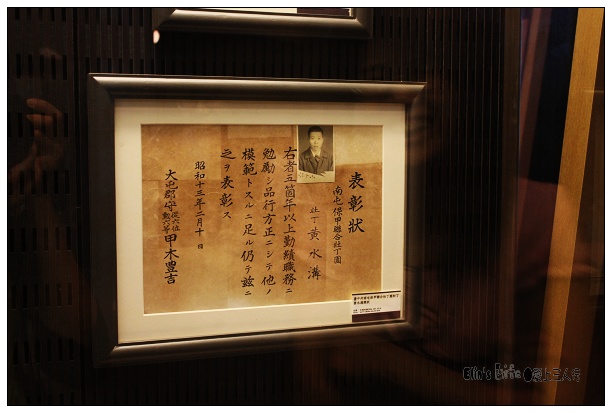 表彰狀
南屯保甲聯合壯丁團
壯丁 黃水溝
右者五箇年以上勤績職務ニ
勉勵シ品行方正ニシテ他ノ
模範トスルニ足ル仍テ茲ニ
之ヲ表彰ス
昭和十三年二月十日
大屯郡守從六位勳六等甲木豊吉
Elin's Life
愛上三人行